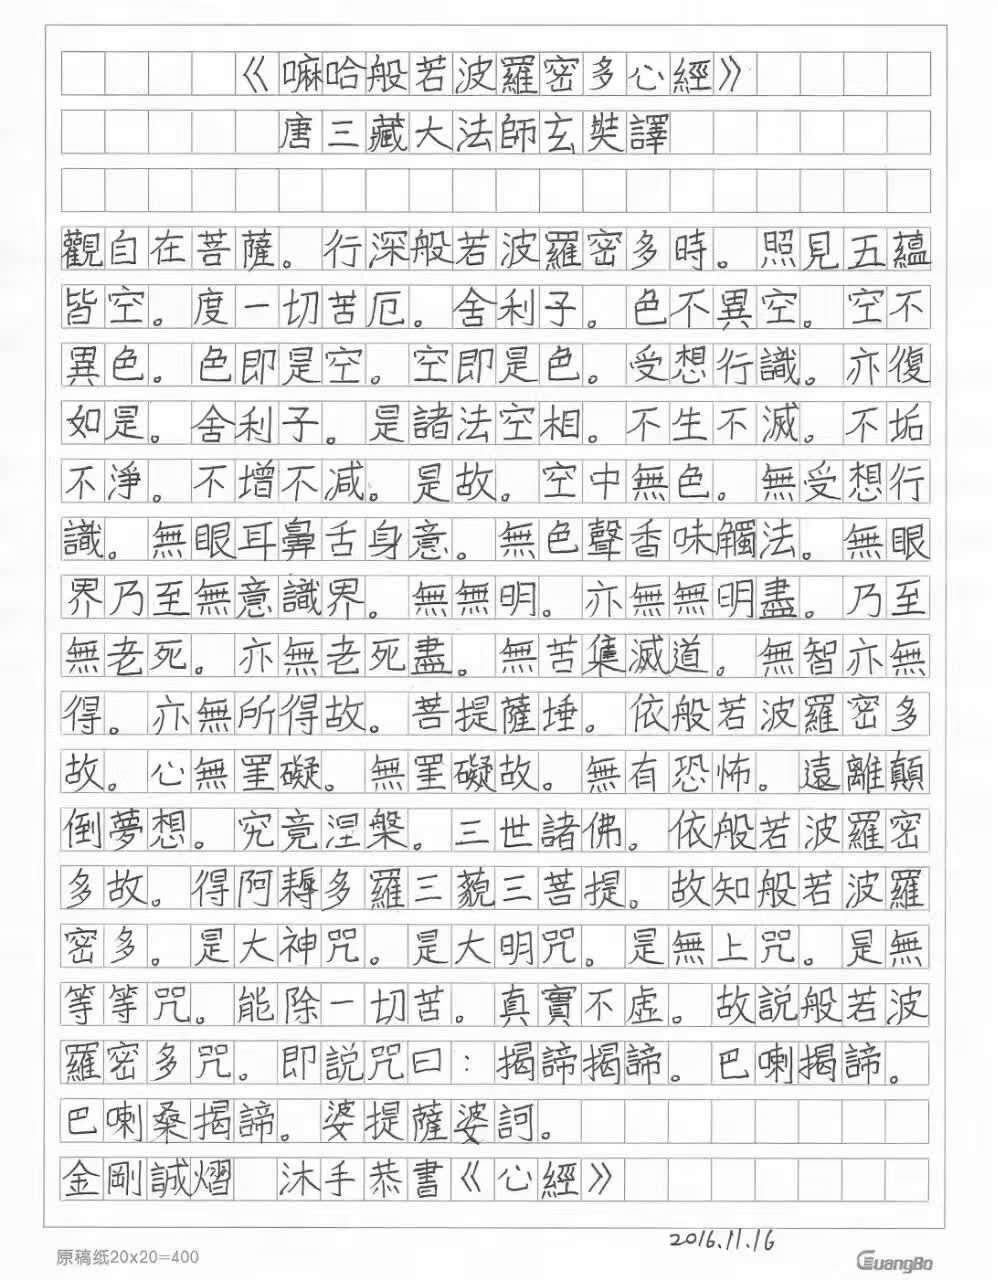 《嘛哈般若波羅密多心經》
唐三藏大法師玄奘譯
觀自在菩薩。行深般若波羅密多時。照見五蘊
皆空。度一切苦厄。舍利子。色不異空。空不
異色。色即是空。空即是色。受想行識。亦復
如是。舍利子。是諸法空相。不生不滅。不垢
不淨。不增不减。是故。空中無色。無受想行
識。無眼耳鼻舌身意。無色聲香味觸法。無眼
界乃至無意識界。無無明。亦無無明盡。乃至
無老死。亦無老死盡。無苦集滅道。無智亦無
得。亦無所得故。菩提薩埵。依般若波羅密多
故。心無罣礙。無罣礙故。無有恐怖。遠離顛
倒夢想。究竟涅槃。三世諸佛。依般若波羅密
多故。得阿耨多羅三藐三菩提。故知般若波羅
密多。是大神咒。是大明咒。是無上咒。是無
等等咒。能除一切苦。真實不虛。故説般若波
羅密多咒。即説咒曰：揭諦揭諦。巴喇揭諦。
巴喇桑揭諦。婆提薩婆訶。
金剛誠熠 沐手恭書《心經》
2016.11.16
原稿纸20x20=400
GuangBo